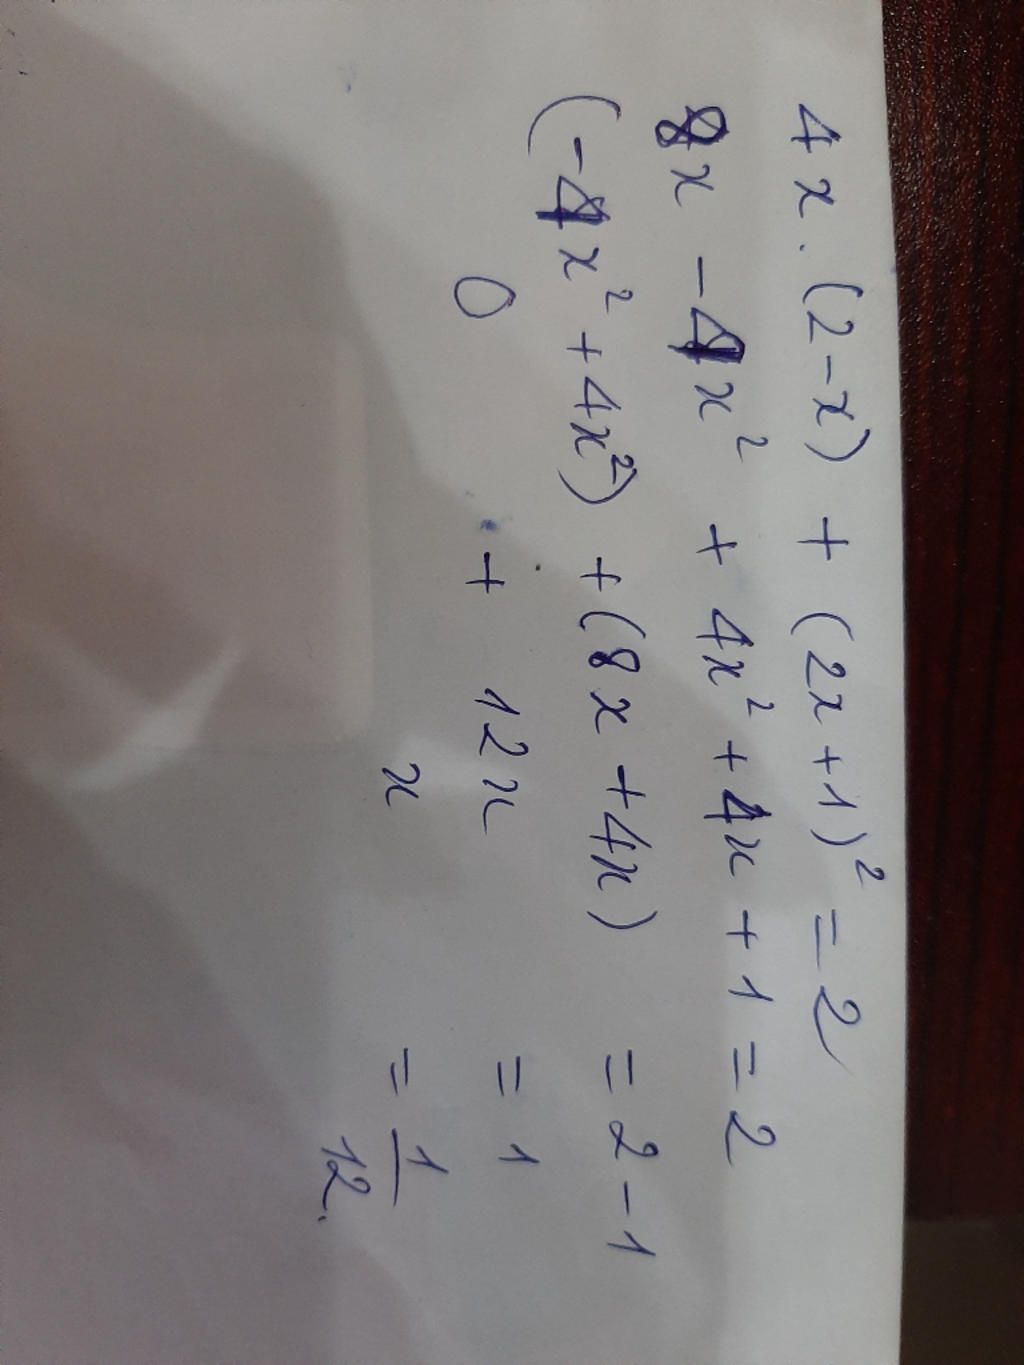 4x.(2-x) + (2x+1)² = 2
8x - 4x² + 4x² + 4x + 1 = 2
(-4x² + 4x²) + (8x + 4x) = 2 - 1
0 + 12x = 1
x = 1/12.